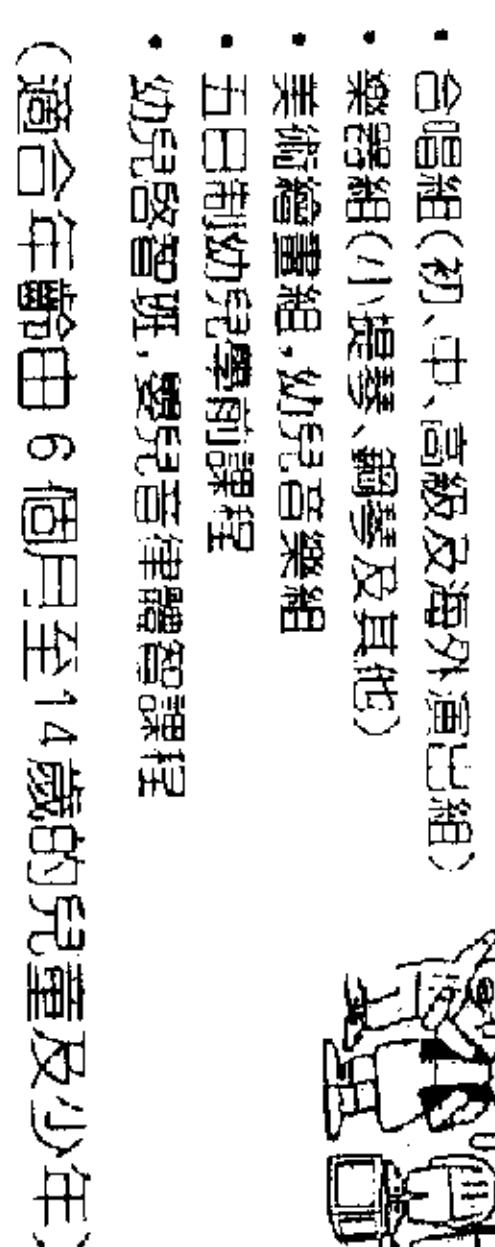 • 合唱組(初、中、高級及海外演出組)
• 樂器組(小提琴、鋼琴及其他)
• 美術繪畫組,幼兒音樂組
• 五日制幼兒學前課程
• 幼兒啟智班,嬰兒音律體智課程
(適合年齡由6個月至14歲的兒童及少年)